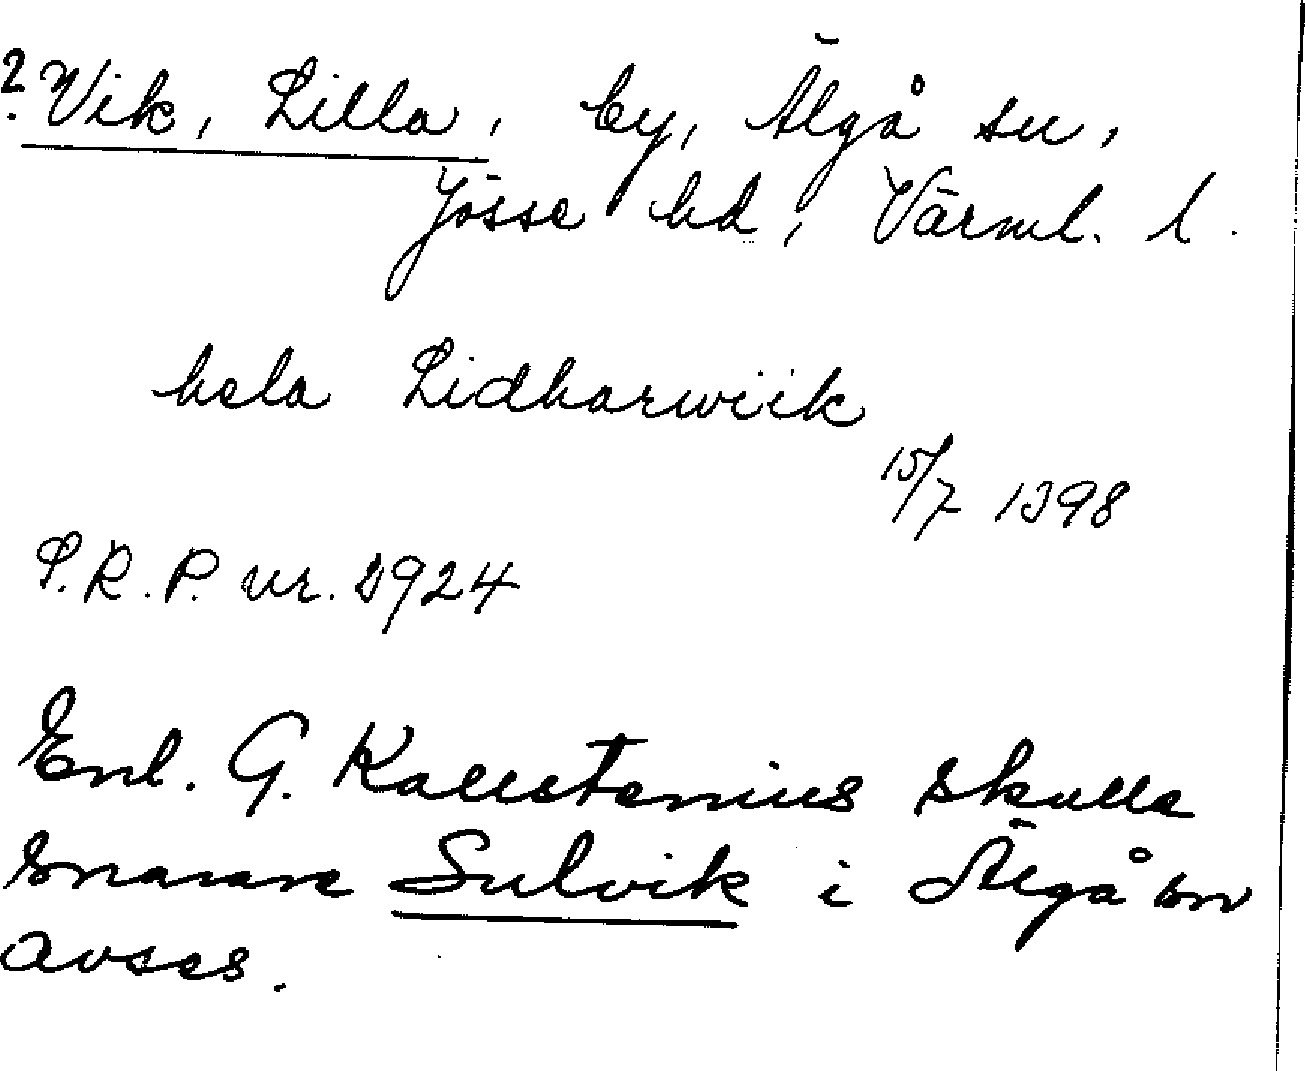 ? Vik, Lilla, by, Älgå sn,
Jösse hd, Värml. l.
hela Lidharwiik
15/7 1398
S.R.P. nr. 2924
Enl. G. Kallstenius skulle
snarare Sulvik i Älgå sn
avses.